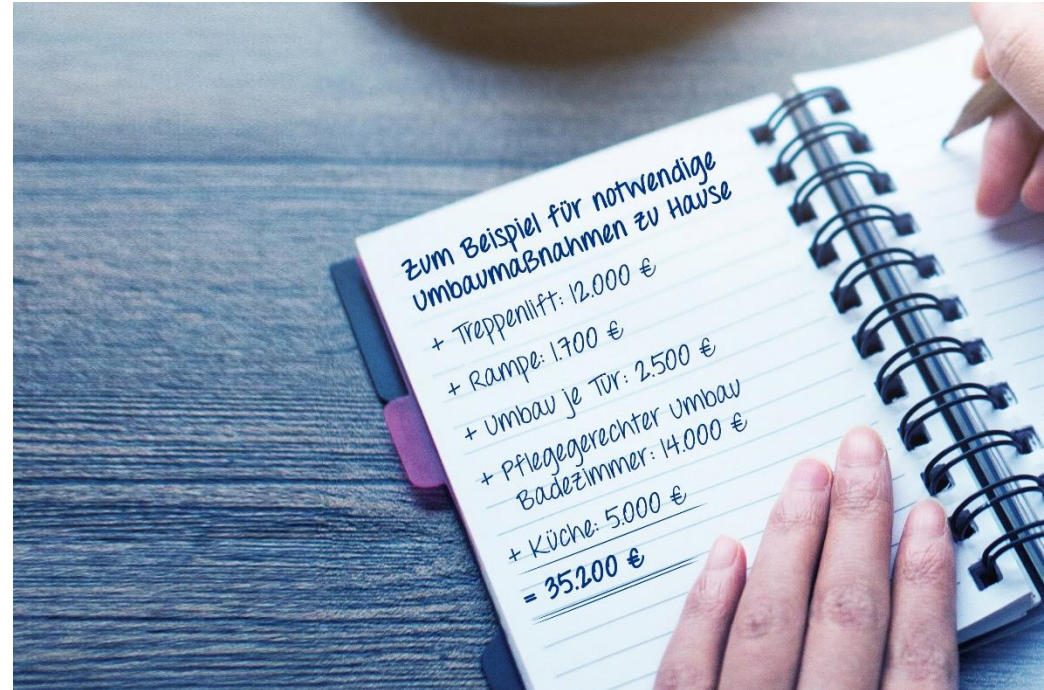 Zum Beispiel für notwendige
Umbaumaßnahmen zu Hause
+ Treppenlift: 12.000 €
+ Rampe: 1.700 €
+ Umbau je Tür: 2.500 €
+ Pflegegerechter Umbau
Badezimmer: 14.000 €
+ Küche: 5.000 €
= 35.200 €